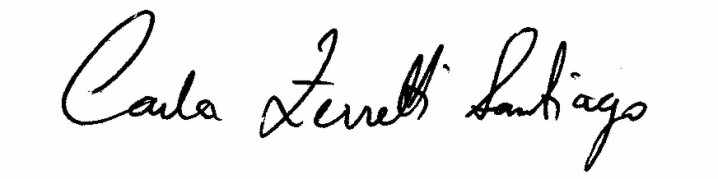 Carla Ferretti Santiago